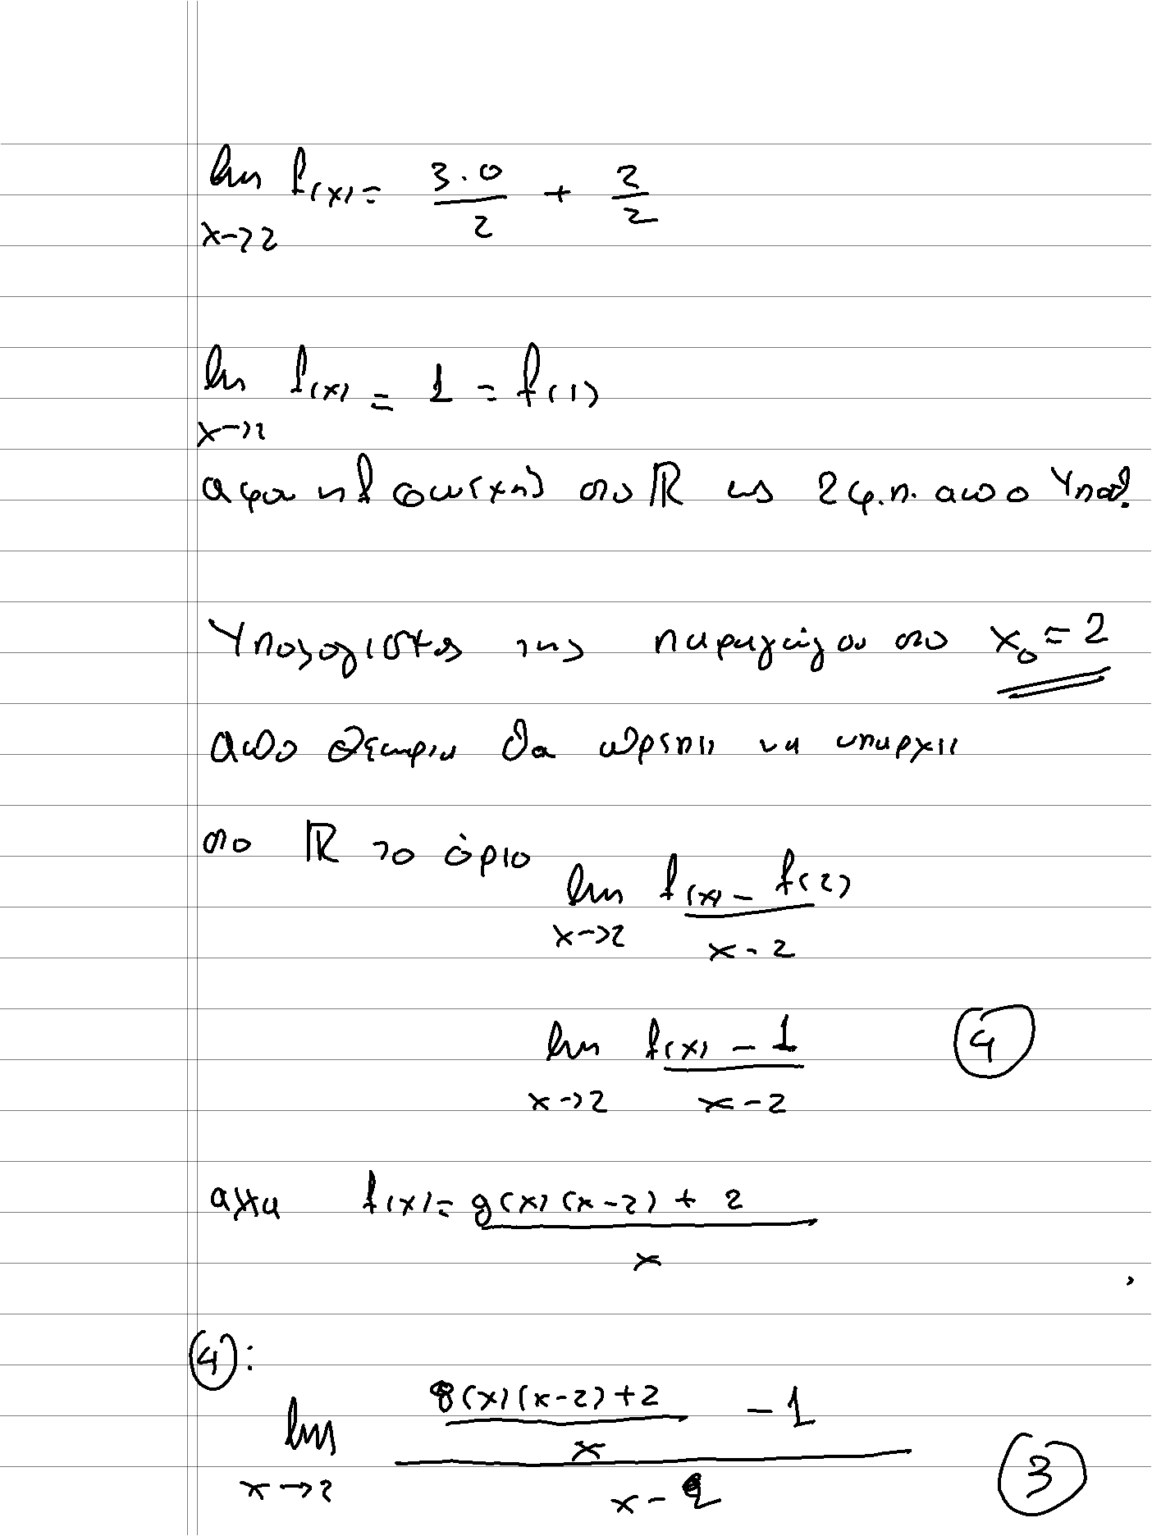 lim f(x) = 3·0/2 + 2/2
x→2
lim f(x) = 1 = f(1)
x→2
αφου η f συνεχης στο ℝ ως 2 φ.π. απο Υποθ.
Υπολογιστος της παραγώγου στο x₀ = 2
απο θεωρια θα πρεπει να υπαρχει
στο ℝ το όριο
lim f(x) - f(2) / x - 2
x→2
lim f(x) - 1 / x - 2 (4)
x→2
αλλα f(x) = g(x)(x-2) + 2 / x
(4):
lim (g(x)(x-2)+2 / x - 1) / x - 2
x→2
(3)